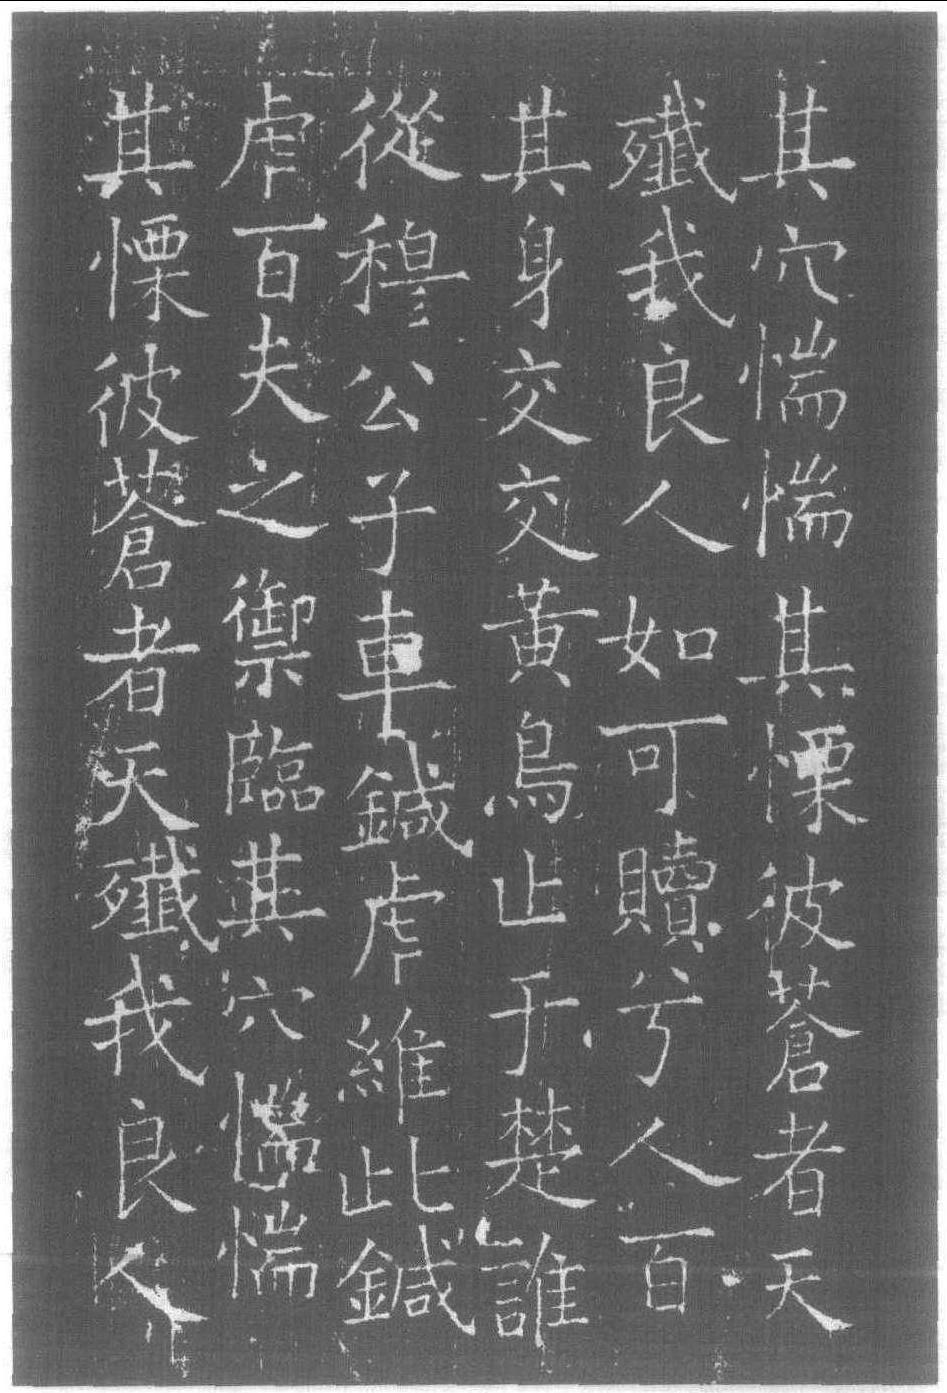 其穴惴惴其慄彼蒼者天
殲我良人如可贖兮人百
其身交交黃鳥止于楚誰
從穆公子車鍼虎維此鍼
虎百夫之禦臨其穴惴惴
其慄彼蒼者天殲我良人